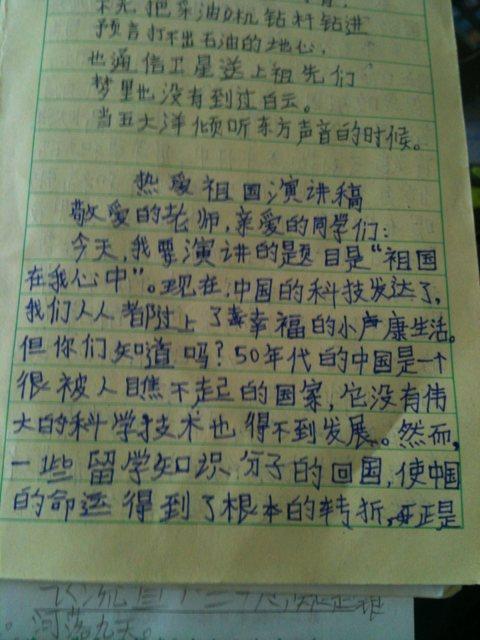 先把采油机钻杆钻进
预言打不出石油的地心,
也通信卫星送上祖先们
梦里也没有到过白云。
当五大洋倾听东方声音的时候。
热爱祖国演讲稿
敬爱的老师,亲爱的同学们:
今天,我要演讲的题目是“祖国
在我心中”。现在,中国的科技发达了,
我们人人都过上了幸福的小康生活。
但你们知道吗?50年代的中国是一个
很被人瞧不起的国家,它没有伟
大的科学技术也得不到发展。然而,
一些留学知识分子的回国,使中国
的命运得到了根本的转折,正是
河落九天。